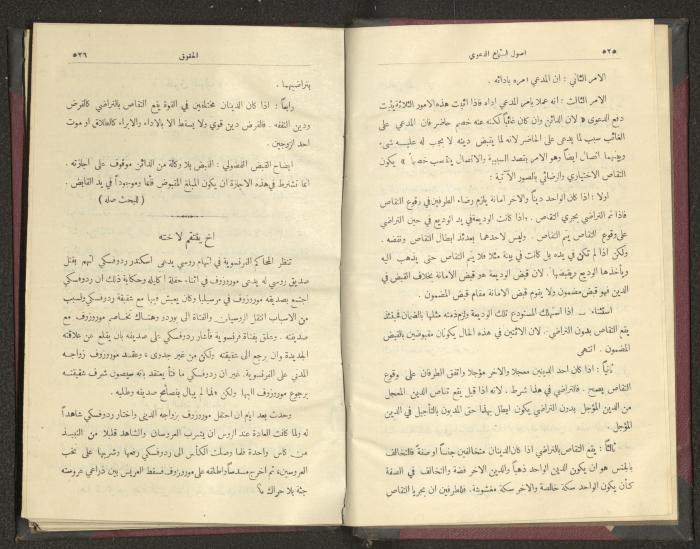 ٥٢٥ اصول استماع الدعوي
الامر الثاني : ان المدعي امره بادائه .
الامر الثالث : انه عملا بامر المدعي اداه فاذا اثبت هذه الامور الثلاثة يثبت
دفع الدعوى « لان الدائن وان كان غائباً لكنه عنه خصم حاضر فان المدعي على
الغائب سبب لما يدعى على الحاضر لانه لما يقبض دينه لا يجب له عليه شيء
وبينهما اتصال ايضاً وهو الامر بقصد السببية والاتصال ينتصب خصماً » يكون
التقاص الاختياري والرضائي بالصور الآتية :
اولا : اذا كان الواحد ديناً والاخر امانة يلزم رضاء الطرفين في وقوع التقاص
فاذا تم التراضي يجري التقاص . واذا كانت الوديعة في يد الوديع في حين التراضي
على وقوع التقاص يتم التقاص . وليس لاحدهما بعدئذ ابطال التقاص ونقضه .
ولكن اذا لم تكن في يده بل كانت في بيته مثلا فلا يتم التقاص حتى يذهب اليه
ويأخذها الوديع ويقبضها . لان قبض الوديعة هو قبض الامانة بخلاف القبض في
الدين فهو قبض مضمون ولا يقوم قبض الامانة مقام قبض المضمون .
استثناء — اذا استهلك المستودع تلك الوديعة ولزم ذمته مثلها بالضمان فحينئذ
يقع التقاص بدون التراضي . لان الاثنين في هذه الحال يكونان مقبوضين بالقبض
المضمون . انتهى
ثانياً : اذا كان احد الدينين معجلا والاخر مؤجلا واتفق الطرفان على وقوع
التقاص يصح . فالتراضي في هذا شرط . لانه اذا قيل يقع تقاص الدين المعجل
من الدين المؤجل بدون التراضي يكون ابطل بهذا حق المديون بالتأجيل في الدين
المؤجل .
ثالثاً : يقع التقاص بالتراضي اذا كان الدينان متخالفين جنساً او صفة فالتخالف
بالجنس هو ان يكون الدين الواحد ذهباً والدين الاخر فضة والتخالف في الصفة
كأن يكون الواحد سكة خالصة والاخر سكة مغشوشة . فللطرفين ان يجريا التقاص
الحقوق ٥٢٦
بتراضيهما .
رابعاً : اذا كان الدينان مختلفين في القوة يقع التقاص بالتراضي كالقرض
ودين النفقه . فالقرض دين قوي ولا يسقط الا بالاداء والابراء كالطلاق او موت
احد الزوجين .
ايضاح القبض الفضولي : القبض بلا وكالة من الدائن موقوف على اجازته .
انما تشترط في هذه الاجازة ان يكون المبلغ المقبوض قائماً وموجوداً في يد القابض .
( للبحث صله )
اخ ينتقم لاخته
تنظر المحاكم الفرنسوية في اتهام روسي يدعى اسكندر ردوفسكي اتهم بقتل
صديق روسي له يدعى موروزوف في اثناء حفلة اكليله وحكاية ذلك ان ردوفسكي
اجتمع بصديقه موروزوف في مرسيليا وكان يعيش فيها مع شقيقة ردوفسكي ولسبب
من الاسباب انتقل الروسيان والفتاة الى بوردو وهناك تخاصر موروزوف مع
صديقته . وعلق بفتاة فرنسوية فأشار ردوفسكي على صديقه بان يقلع عن علاقته
الجديدة وان يرجع الى شقيقته ولكن من غير جدوى ، وعقد موروزوف زواجه
المدني على الفرنسوية . غير ان ردوفسكي ما فتأ يعتقد بانه سيصون شرف شقيقته
برجوع موروزوف اليها ولكن هذا لم يبال بنصائح صديقه وطلبه .
وحدث بعد ايام ان احتفل موروزوف بزواجه الديني واختار ردوفسكي شاهداً
له ولما كانت العادة عند الروس ان يشرب العروسان والشاهد قليلا من النبيذ
من كأس واحدة فلما وصلت الكأس الى ردوفسكي رفعها وشربها على نخب
العروسين ، ثم اخرج مسدساً واطلقه على موروزوف فسقط العريس بين ذراعي عروسته
جثة بلا حراك